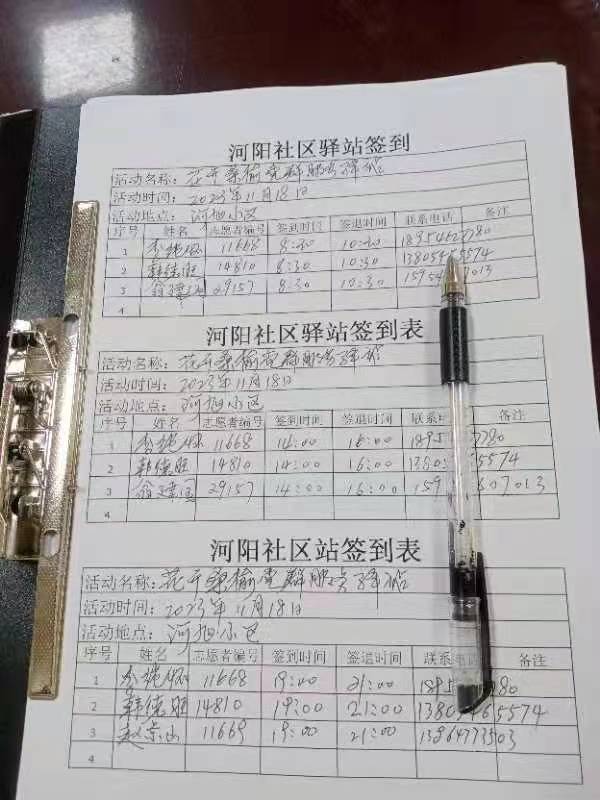 河阳社区驿站签到
活动名称：花开桑榆党群服务驿站
活动时间：2023年11月18日
活动地点：河阳小区
序号 姓名 志愿者编号 签到时间 签退时间 联系电话 备注
1 11668 8:30 10:30
2 韩德胜 14810 8:30 10:30
3 翁建国 29157 8:30 10:30
4
河阳社区驿站签到表
活动名称：花开桑榆党群服务驿站
活动时间：2023年11月18日
活动地点：河阳小区
序号 姓名 志愿者编号 签到时间 签退时间 备注
1 11668 14:00 16:00
2 韩德胜 14810 14:00 16:00
3 翁建国 29157 14:00 16:00
4
河阳社区站签到表
活动名称：花开桑榆党群服务驿站
活动时间：2023年11月18日
活动地点：河阳小区
序号 姓名 志愿者编号 签到时间 签退时间 备注
1 11668 19:00 21:00
2 韩德胜 14810 19:00 21:00
3 赵宗山 11669 19:00 21:00 13964773503
4